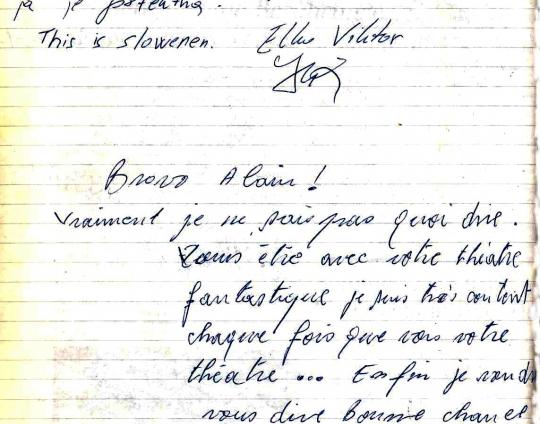 ja je potrebna.
This is slowenen. Elko Viktor
Bravo Alain!
Vraiment je ne sais pas quoi dire.
Vous être avec votre théatre
fantastique je suis très content
chaque fois que vois votre
théatre ... Enfin je
vous dire bonne chance